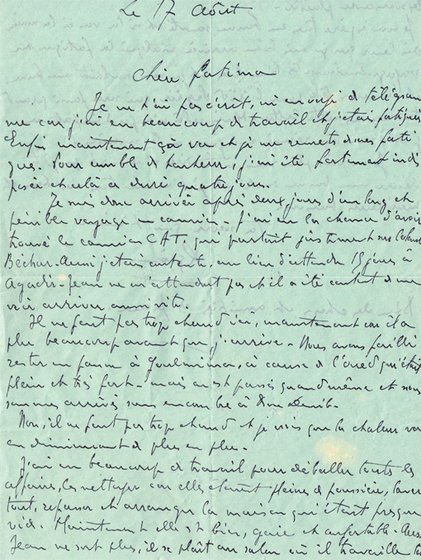 Le 17 Août
Chère Fatima
Je ne t'ai pas écrit, ni envoyé de télégram
me car j'ai eu beaucoup de travail et j'étais fatiguée
Enfin maintenant ça va et je me remets de mes fati
gues. Pour comble de malheur, j'ai été fortement indis
posée et cela a duré quatre jours.
Je suis donc arrivée après deux jours d'un long et
pénible voyage en camion. J'ai eu la chance d'avoir
trouvé le camion CAT, qui partait justement sur Colomb
Béchar. Aussi j'étais contente, au lieu d'attendre 15 jours à
Agadir. Jean ne m'attendait pas et il a été content de me
voir arriver aussi vite.
Il ne fait pas trop chaud ici, maintenant car il a
plu beaucoup avant que j'arrive. Nous avons failli
rester en panne à Goulmima, à cause de l'oued qui était
plein et très fort. mais on est passés quand même et nous
sommes arrivés sans encombre à Bou Denib.
Non, il ne fait pas trop chaud et je crois que la chaleur va
en diminuant de plus en plus.
J'ai eu beaucoup de travail pour déballer toutes les
affaires, les nettoyer car elles étaient pleines de poussière, laver
tout, repasser et arranger la maison qui était presque
vide. Maintenant elle est bien, gaie et confortable. Aussi
Jean ne sort plus, il se plaît au salon où il travaille le